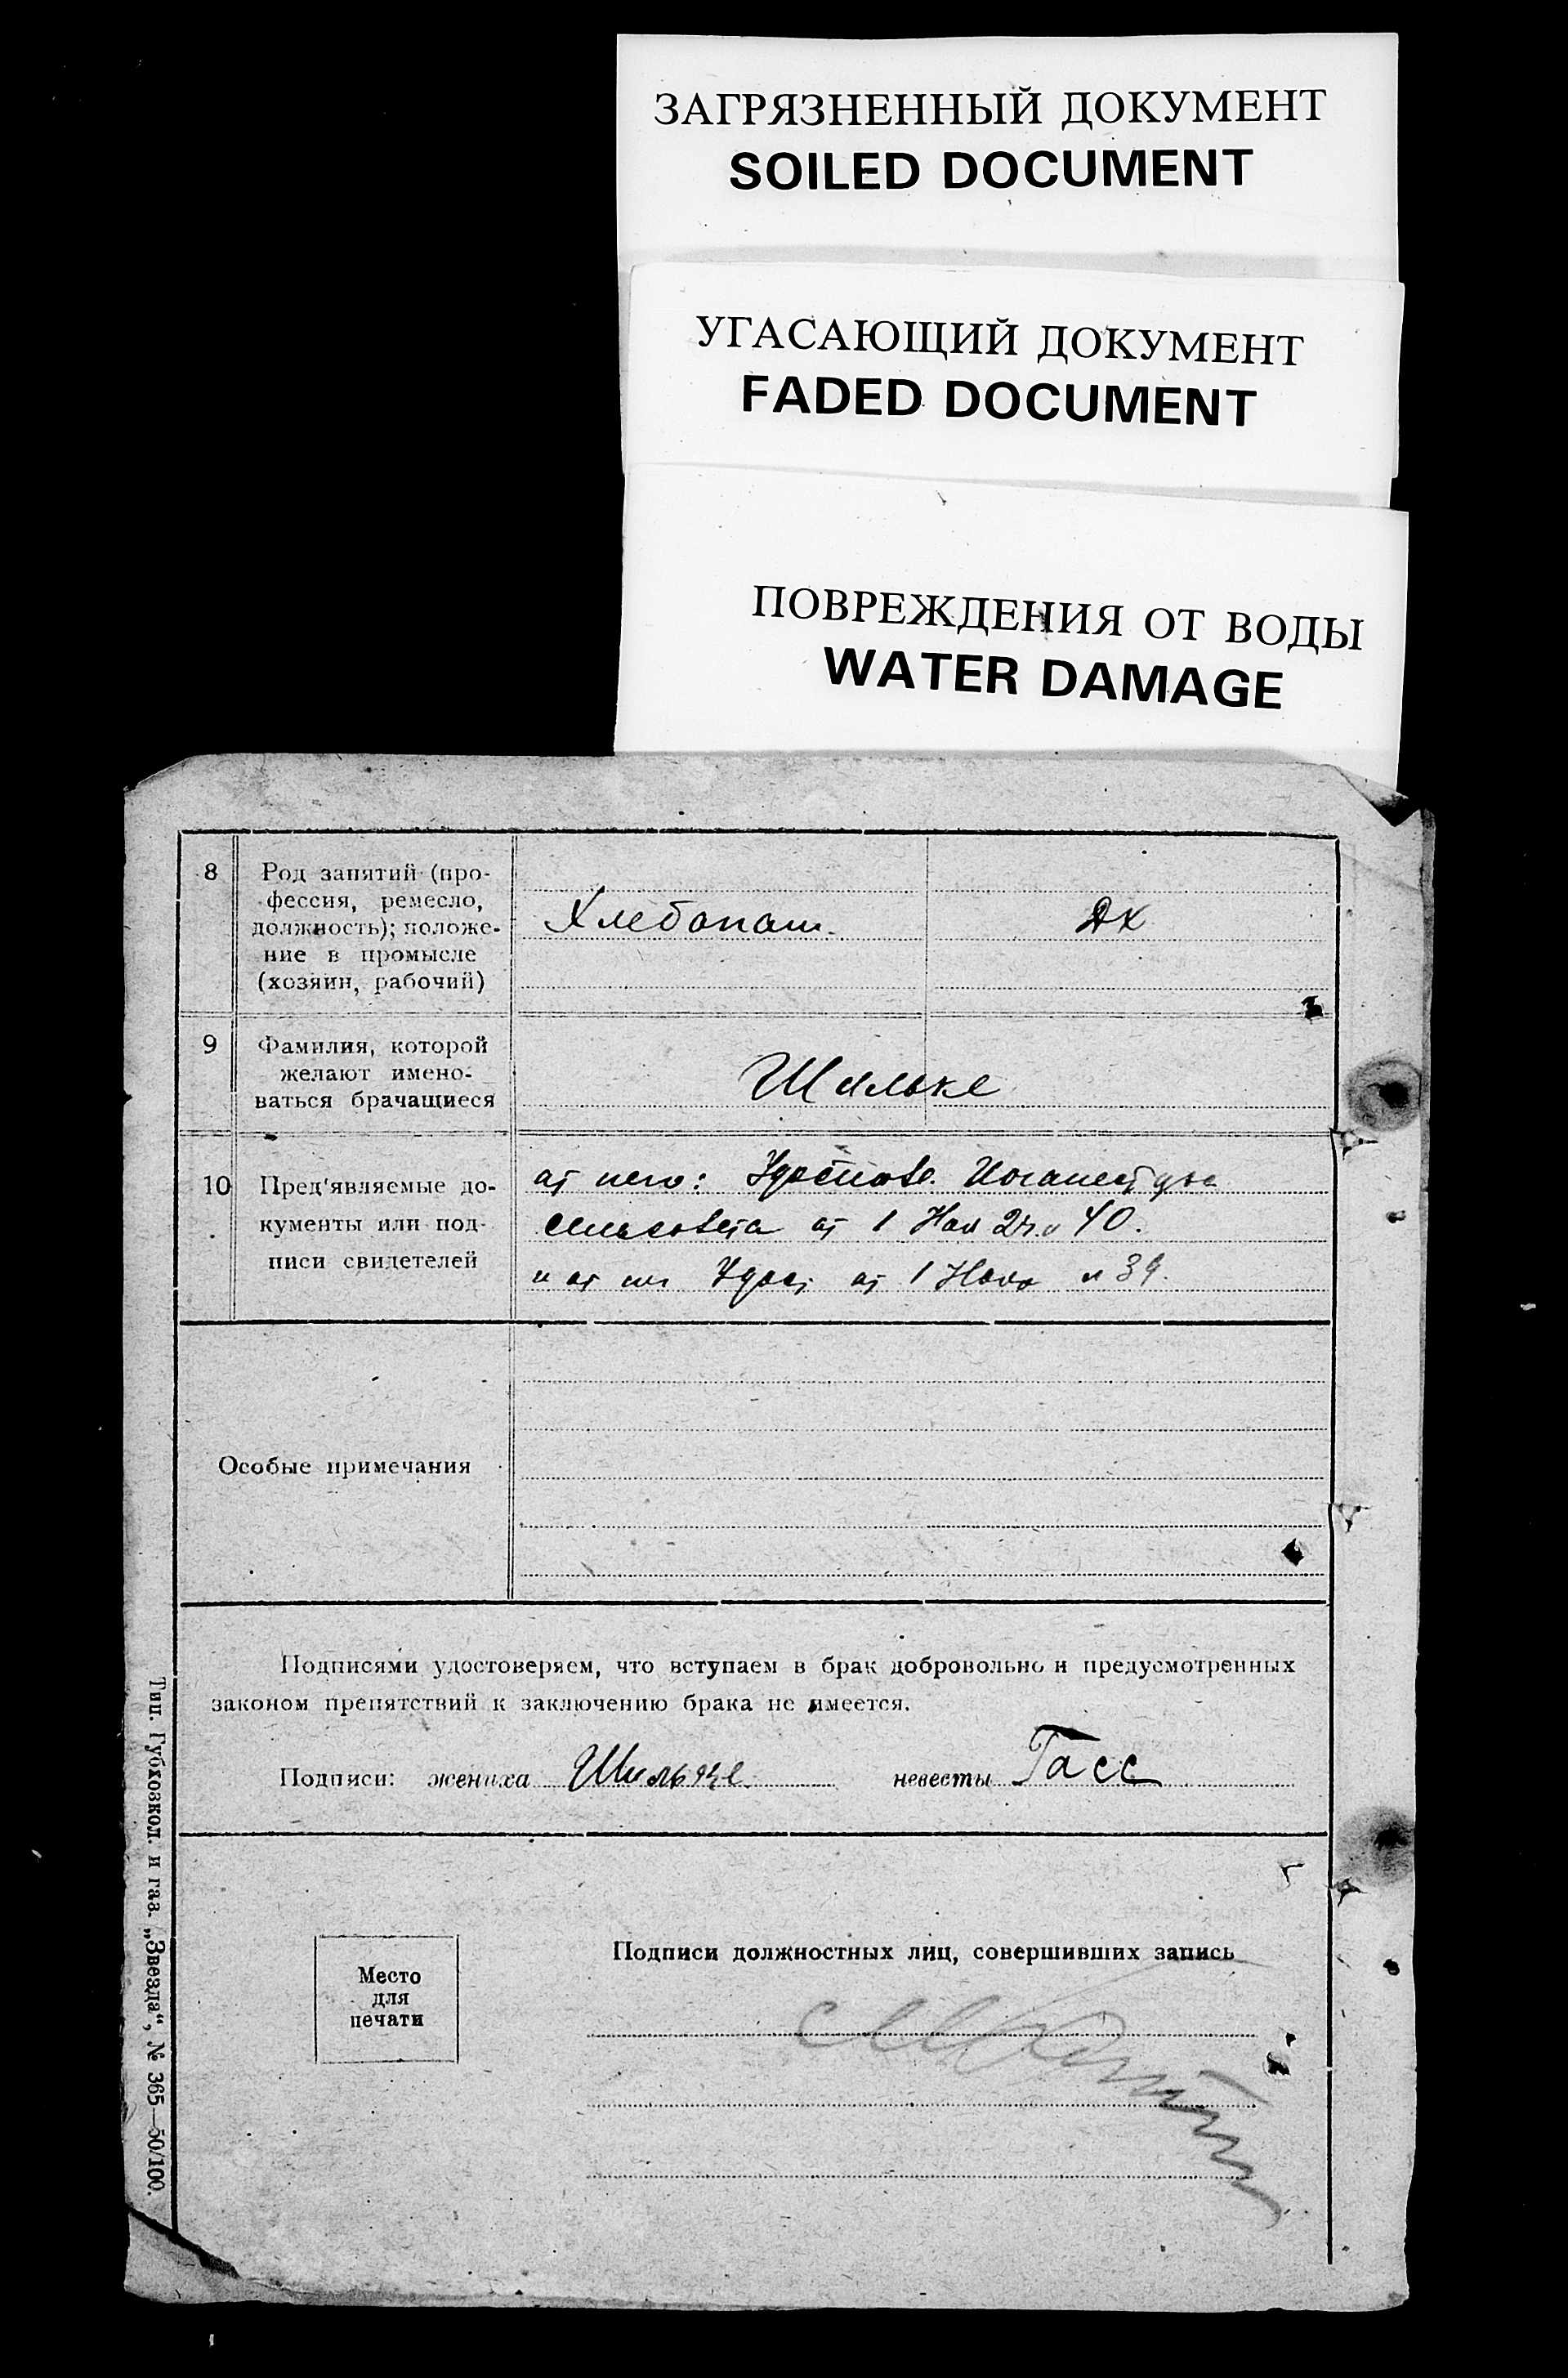 ЗАГРЯЗНЕННЫЙ ДОКУМЕНТ
SOILED DOCUMENT
УГАСАЮЩИЙ ДОКУМЕНТ
FADED DOCUMENT
ПОВРЕЖДЕНИЯ ОТ ВОДЫ
WATER DAMAGE
8
Род занятий (про-
фессия, ремесло,
должность); положе-
ние в промысле
(хозяин, рабочий)
Хлебопаш.
ДХ
9
Фамилия, которой
желают имено-
ваться брачащиеся
Шильке
10
Пред'являемые до-
кументы или под-
писи свидетелей
от него:
сельсовета от 1 40.
и от от 1 39.
Особые примечания
Подписями удостоверяем, что вступаем в брак добровольно и предусмотренных
законом препятствий к заключению брака не имеется.
Подписи: жениха Шильке невесты Гасс
Место
для
печати
Подписи должностных лиц, совершивших запись
Тип. Губхозкол. и газ. „Звезда“, № 365—50/100.